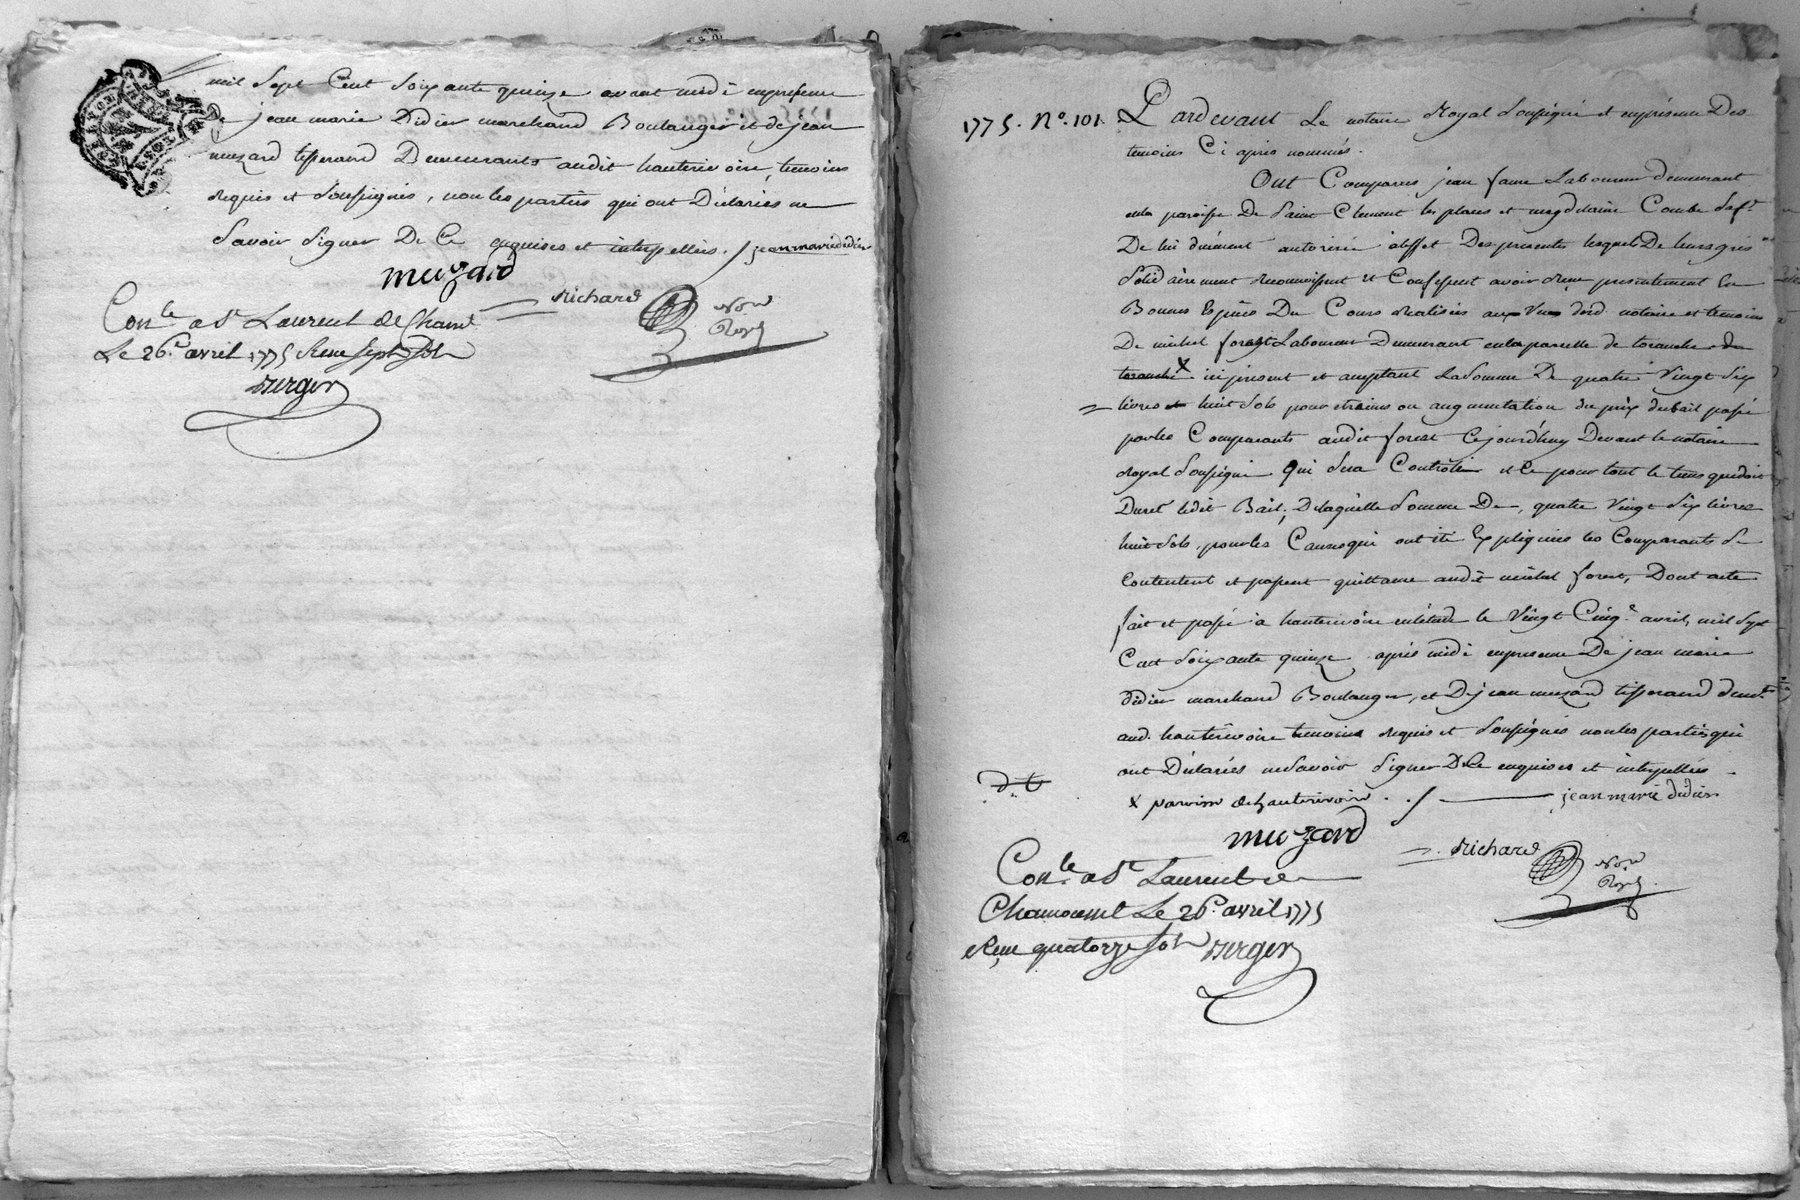 mil Sept Cent Soixante quinze avant midi en presence
De jean marie Didier marchand Boulanger et de jean
muzard tisserand Demeurants audit hauterivoire, temoins
requis et Soussignés, non les parties qui ont Déclarées ne
Savoir Signer De Ce enquises et interpellées. / jean marie didier
muzard
richard
Not.re
Royal
Con.le a St Laurent de Cham.t
Le 26.e avril 1775 Reçu sept sols
Berger
1775. N°. 101.
Pardevant Le notaire Royal Soussigné et en présence Des
temoins Ci après nommés.
Ont Comparus jean faure Laboureur demeurant
en la paroisse De Saint Clement les places et magdelaine Combe Sa f.e
De lui dûement autorisée à l'effet Des presentes lesquels De leurs grés
Solidairement reconnoissent et Confessent avoir reçu presentement En
Bonnes Espèces Du Cours realisées aux Vues dud notaire et temoins
De michel forest Laboureur Demeurant en la parcelle de toranche de
toranche x ici present et acceptant La Somme De quatre Vingt Six
livres et huit Sols pour etreines ou augmentation du prix du bail passé
par les Comparants audit forest Cejourd'huy Devant le notaire
royal Soussigné qui Sera Contrôlé et Ce pour tout le tems que doit
Durer ledit Bail; De laquelle Somme De quatre Vingt Six livres
huit Sols, pour les Causes qui ont été Expliquées les Comparants Se
Contentent et passent quittance audit michel forest, Dont acte
fait et passé à hauterivoire en l'étude le Vingt Cinq.e avril, mil Sept
Cent Soixante quinze après midi en presence De jean marie
didier marchand Boulanger, et De jean muzard tisserand dem.ts
aud. hauterivoire temoins requis et Soussignés non les parties qui
ont Déclarés ne Savoir Signer De Ce enquises et interpellées
x paroisse de hauterivoire. / jean marie didier
muzard
richard
Not.re
Royal
Con.le a St Laurent de
Chamousset Le 26.e avril 1775
Reçu quatorze sols Berger